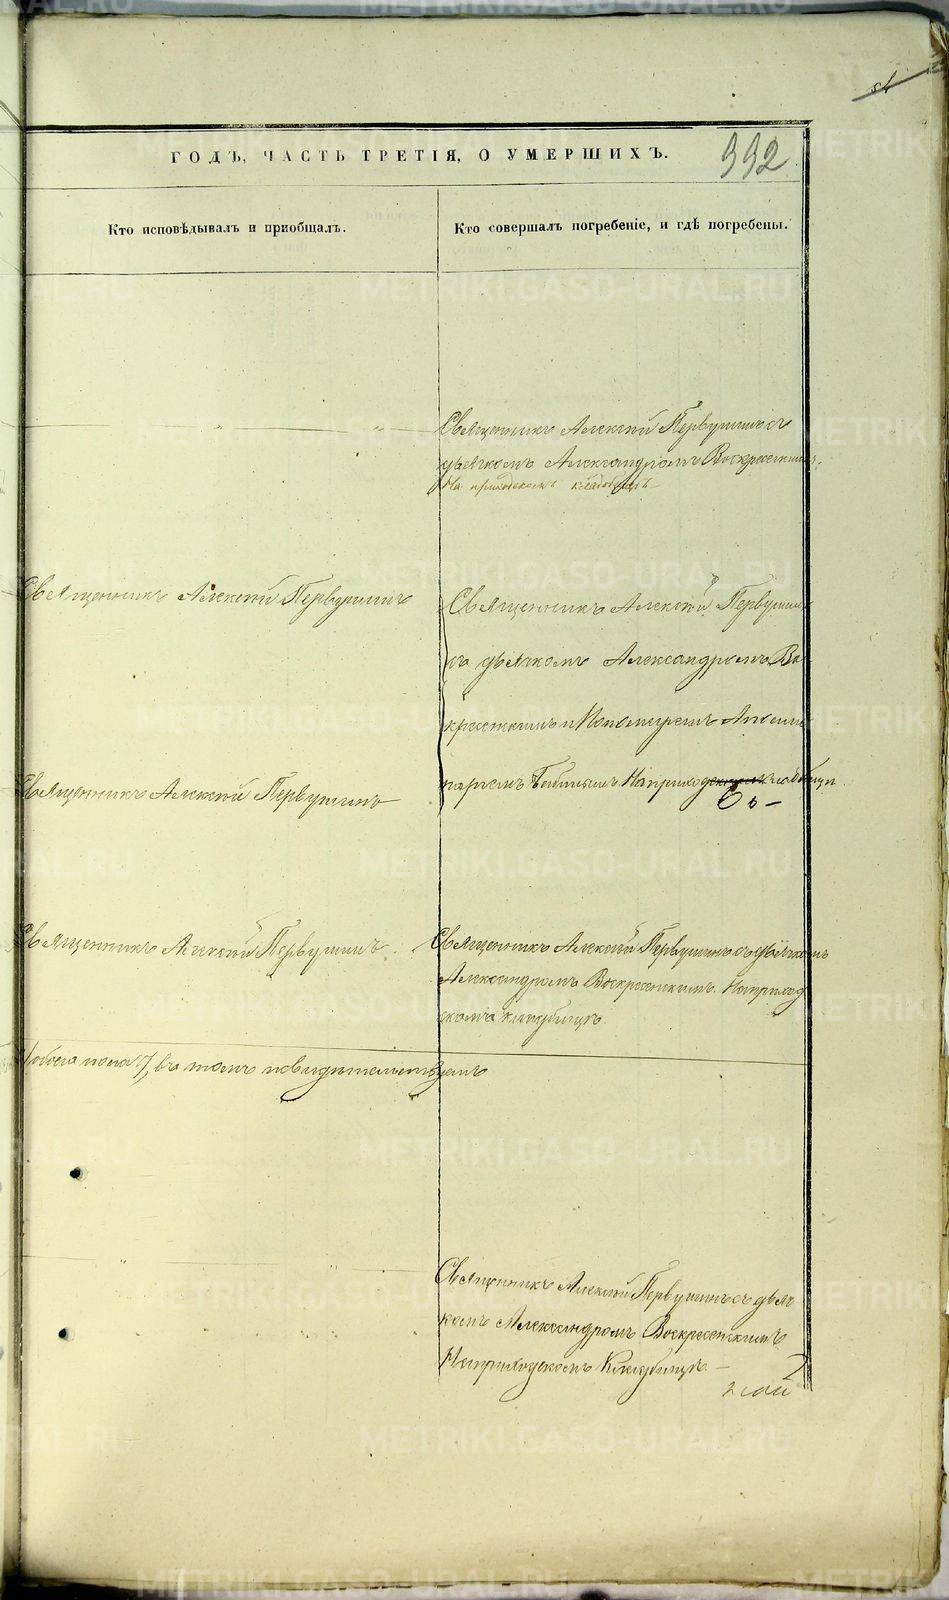 992
ГОДЪ, ЧАСТЬ ТРЕТІЯ, О УМЕРШИХЪ.
Кто исповѣдывалъ и пріобщалъ.
Кто совершалъ погребеніе, и гдѣ погребены.
Священникъ Алексій Первушинъ съ
дьячкомъ Александромъ Воскресенскимъ
На приходскомъ кладбищѣ
Священникъ Алексій Первушинъ
Священникъ Алексій Первушинъ
съ дьячкомъ Александромъ Вос
кресенскимъ и Пономаремъ
На приход кладбищѣ
Священникъ Алексій Первушинъ
Священникъ Алексій Первушинъ
Священникъ Алексій Первушинъ съ дьячкомъ
Александромъ Воскресенскимъ. На приход
скомъ кладбищѣ.
обоего пола 7, въ томъ свидѣтельствуемъ
Священникъ Алексій Первушинъ съ дьяч
комъ Александромъ Воскресенскимъ
На приходскомъ Кладбищѣ
METRIKI.GASO-URAL.RU